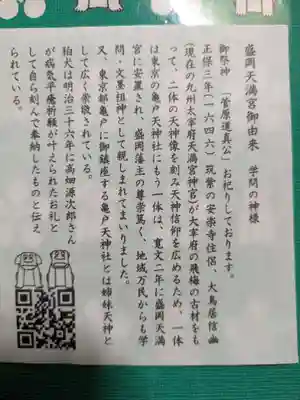 盛岡天満宮御由来　学問の神様
御祭神　「菅原道真公」お祀りしております。
正保三年(一六四六)筑紫の安楽寺住侶、大鳥居信幽
(現在の九州太宰府天満宮神官)が大宰府の飛梅の古材をも
って、二体の天神像を刻み天神信仰を広めるため、一体
は東京の亀戸天神社にもう一体は、寛文二年に盛岡天満
宮に安置され、盛岡藩主の尊崇篤く、地域万民からも学
問・文墨祖神として親しまれてまいりました。
又、東京都亀戸に御鎮座する亀戸天神社とは姉妹天神と
して広く崇敬されている。
狛犬は明治三十六年に高畑源次郎さん
が病気平癒祈願が叶えられたお礼と
して自ら刻んで奉納したものと伝え
られている。